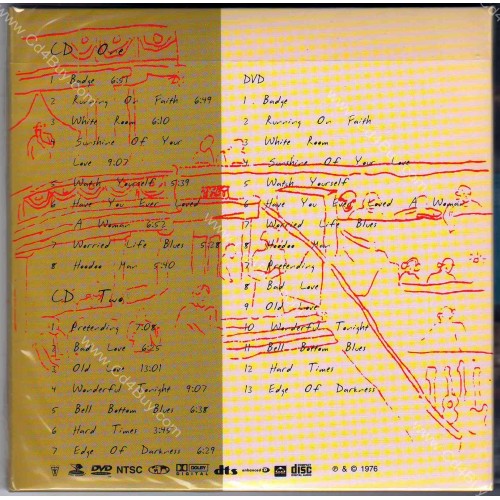 CD One
1 Badge 6:51
2 Running On Faith 6:49
3 White Room 6:10
4 Sunshine Of Your
Love 9:07
5 Watch Yourself 5:39
6 Have You Ever Loved
A Woman 6:52
7 Worried Life Blues 5:28
8 Hoodoo Man 5:40
CD Two
1 Pretending 7:08
2 Bad Love 6:25
3 Old Love 13:01
4 Wonderful Tonight 9:07
5 Bell Bottom Blues 6:38
6 Hard Times 3:45
7 Edge Of Darkness 6:29
DVD
1 Badge
2 Running On Faith
3 White Room
4 Sunshine Of Your Love
5 Watch Yourself
6 Have You Ever Loved A Woman
7 Worried Life Blues
8 Hoodoo Man
7 Pretending
8 Bad Love
9 Old Love
10 Wonderful Tonight
11 Bell Bottom Blues
12 Hard Times
13 Edge Of Darkness
DVD NTSC DOLBY DIGITAL dts enhanced disc ℗ & © 1976
www.Cd4Buy.com